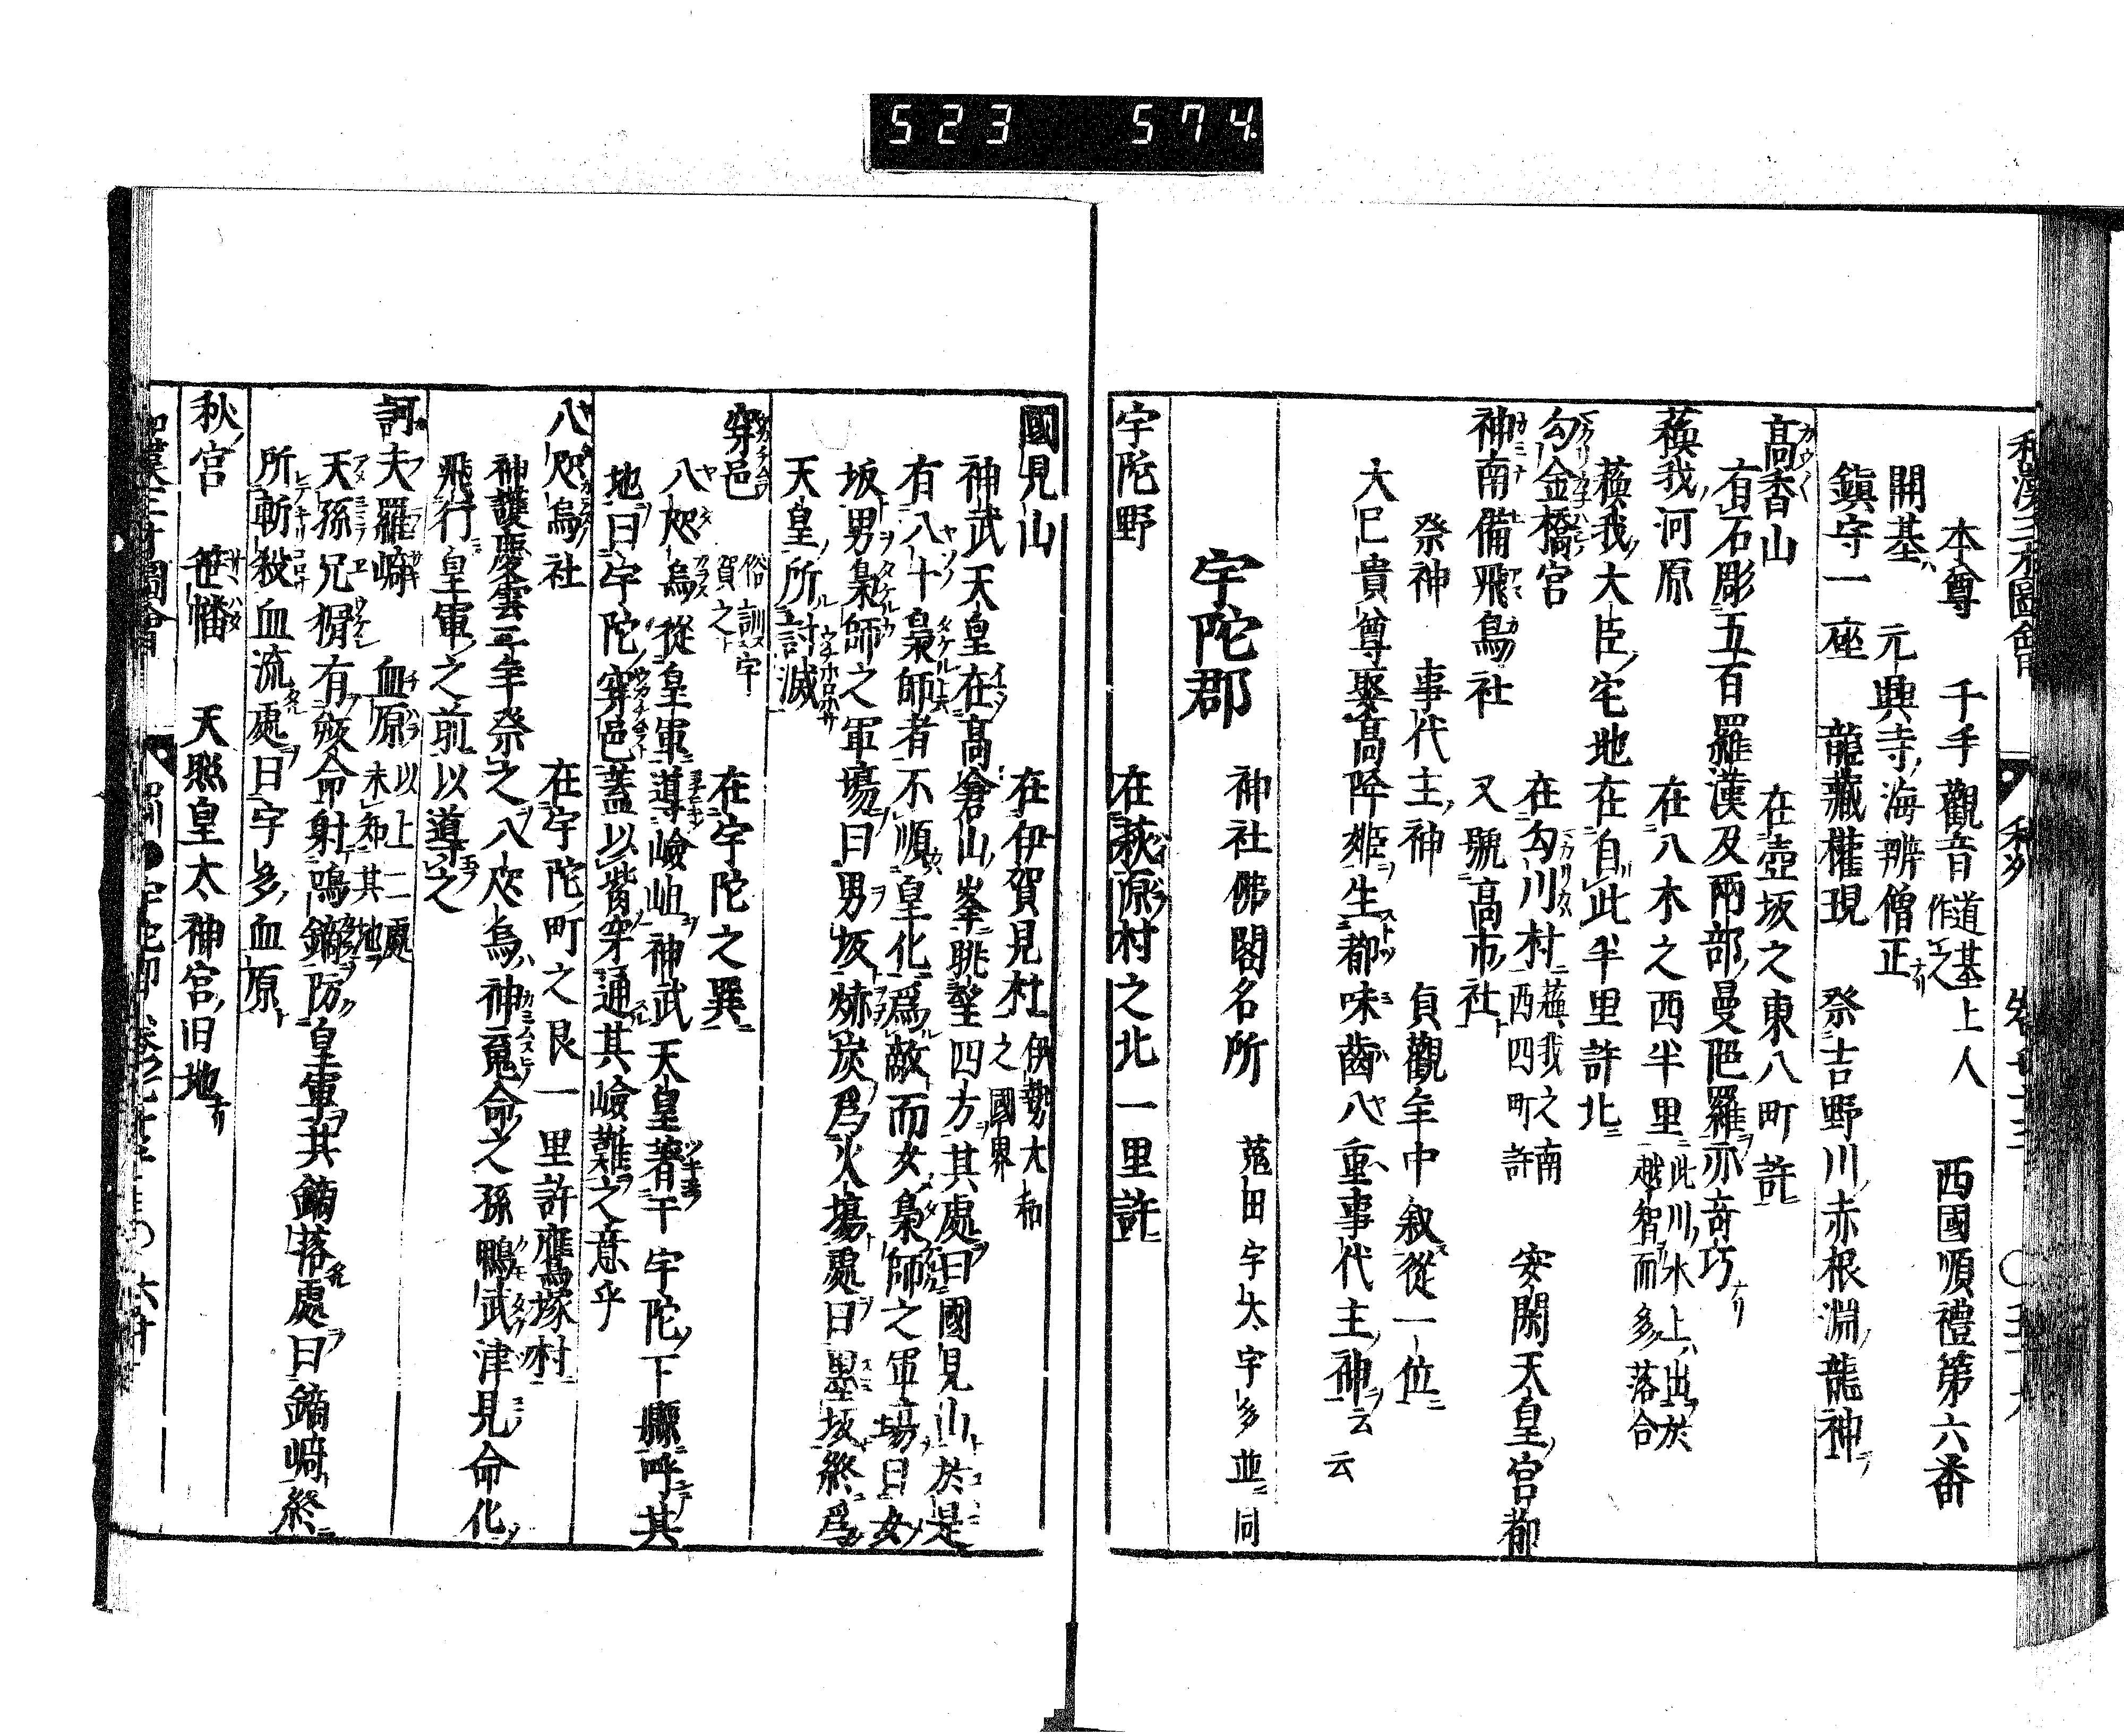 523 574
和漢三才圖會
本尊 千手觀音 道基上人作之 西國順禮第六番
開基 元興寺海辨僧正
鎮守一座 龍藏權現 祭吉野川赤根淵龍神
高香山 在壺坂之東八町許
有石彫五百羅漢及兩部曼陀羅亦奇巧
蘇我河原 在八木之西半里 此川水上出於越智而多落合
蘇我大臣宅地在自此半里許北
勾金橋宮 在勾川村 蘇我之南西四町許 安閑天皇宮都
神南備飛鳥社 又號高市社
祭神 事代主神 貞觀年中叙從一位
大已貴尊娶高降姬生都味齒八重事代主神云云
宇陀郡 神社佛閣名所 菟田 宇太 宇多 並同
宇陀野 在萩原村之北一里許
國見山 在伊賀見村 伊勢大和之國界
神武天皇在高倉山峯眺望四方其處曰國見山於是
有八十梟師者不順皇化爲敵而女梟師之軍場曰女
坂男梟師之軍場曰男坂㷀炭爲火場處曰墨坂終爲
天皇所討滅
穿邑 俗訓宇賀之 在宇陀之巽
八咫烏從皇軍導嶮岨神武天皇著于宇陀下縣呼其
地曰宇陀穿邑蓋以觜穿通其嶮難之意乎
八咫烏社 在宇陀町之艮一里許鷹塚村
神護慶雲二年祭之八咫烏神䰟命之孫鴨武津見命化
飛行皇軍之前以導之
訶夫羅崎 血原 以上二處未知其地
天孫兄猾有㢤命射鳴鏑防皇軍其鏑落處曰鏑崎終
所斬殺血流處曰宇多血原
秋宮 笹幡 天照皇太神宮旧地